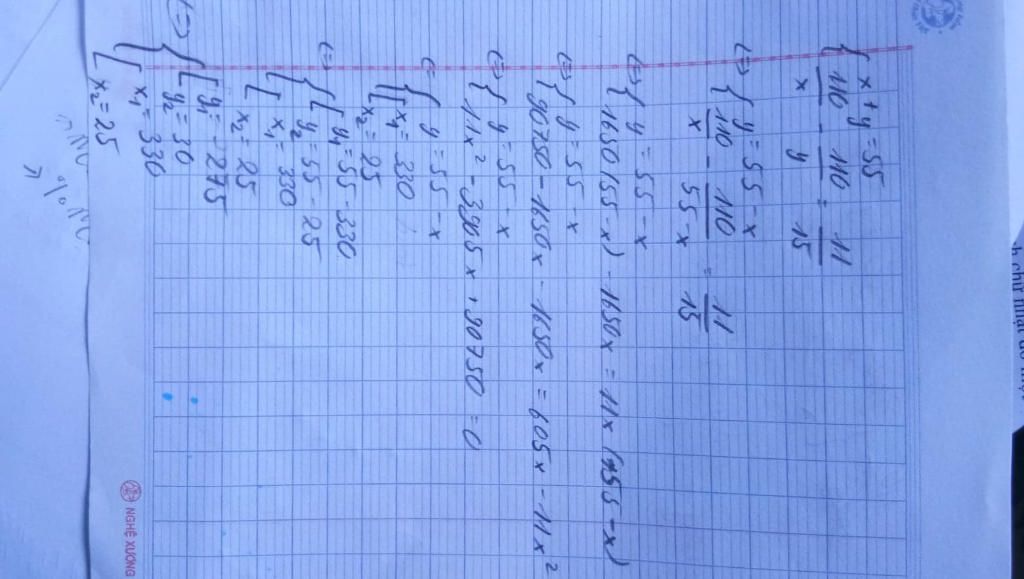 { x + y = 55
110/x - 110/y = 11/15
<=> { y = 55 - x
110/x - 110/55-x = 11/15
<=> { y = 55 - x
1650(55-x) - 1650x = 11x(55-x)
<=> { y = 55 - x
90750 - 1650x - 1650x = 605x - 11x²
<=> { y = 55 - x
11x² - 3905x + 90750 = 0
<= { y = 55 - x
[ x₁ = 330
x₂ = 25
<=> { [ y₁ = 55 - 330
y₂ = 55 - 25
[ x₁ = 330
x₂ = 25
<=> { [ y₁ = -275
y₂ = 30
[ x₁ = 330
x₂ = 25
NGHỆ XƯƠNG